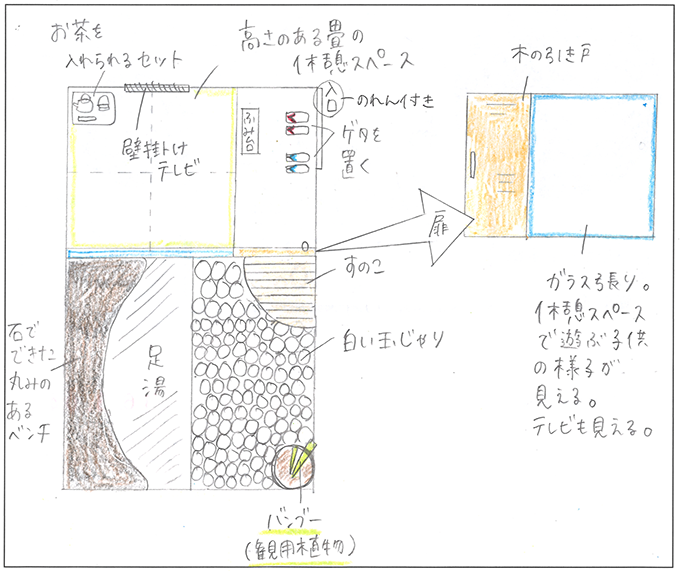 お茶を
入れられるセット
高さのある畳の
休憩スペース
入口
のれん付き
木の引き戸
壁掛け
テレビ
ふみ台
ゲタを
置く
扉
すのこ
ガラス張り。
休憩スペース
で遊ぶ子供
の様子が
見える。
テレビも見える。
石で
できた
丸みの
ある
ベンチ
足湯
白い玉じゃり
バンブー
(観用植物)